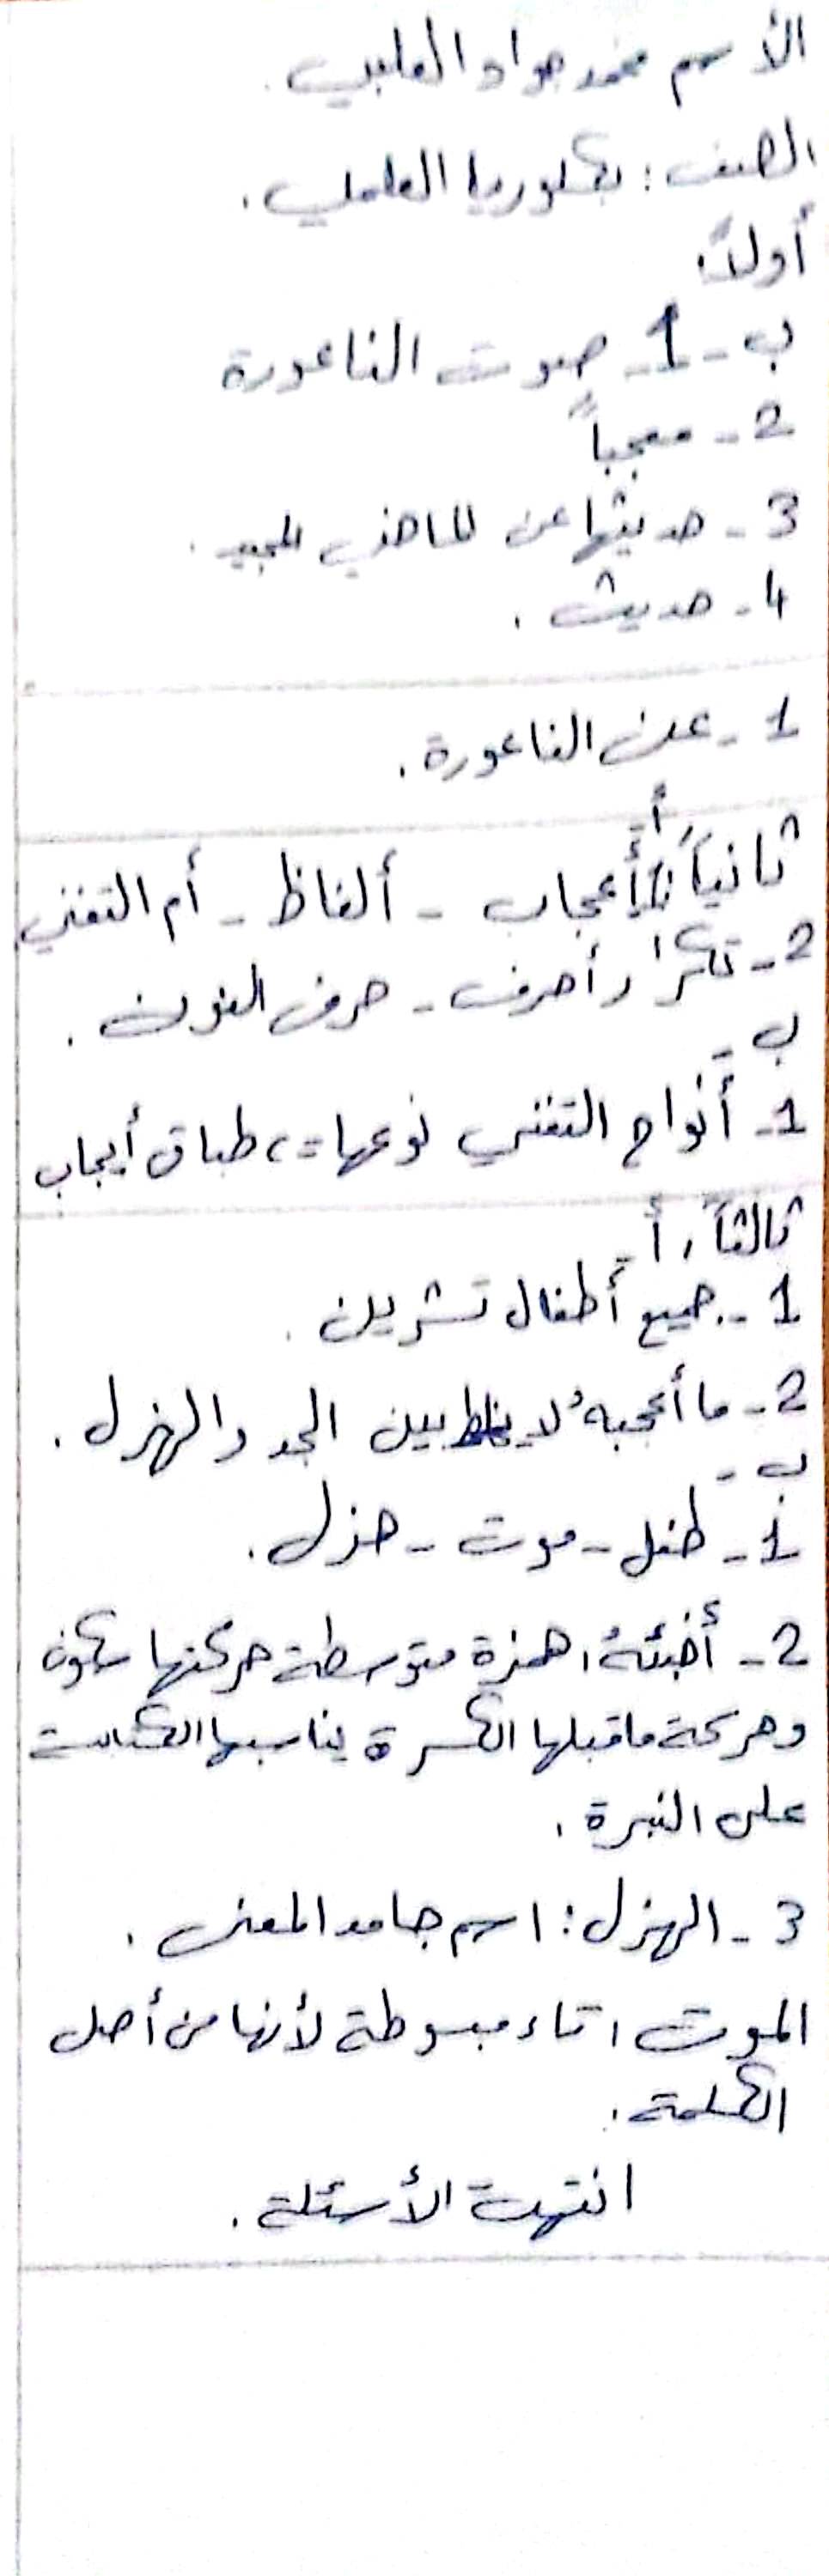 الأسم محمد جواد العلبي.
الصف: بكلوريا العلمي.
أولاً:
ب - 1 - صوت الناعورة
2 - معجباً
3 - حديثها عن الماضي المجيد.
4 - حديث.
1 - عن الناعورة.
ثانياً أ أعجاب - ألفاظ - أم التغني
2 - تكرار أحرف - حرف النون.
ب -
1 - أنواح التغني نوعها = طباق أيجاب
ثالثاً، أ -
1 - جميع أطفال تشرين.
2 - ما أعجبه لا يخلط بين الجد والهزل.
ب -
1 - طفل - موت - هزل.
2 - أخبئهُ، همزة متوسطة حركتها سكون
وحركة ماقبلها الكسرة يناسبها الكتابة
على النبرة.
3 - الهزل: اسم جامد المعنى.
الموت، تاء مبسوطة لأنها من أصل
الكلمة.
انتهت الأسئلة.